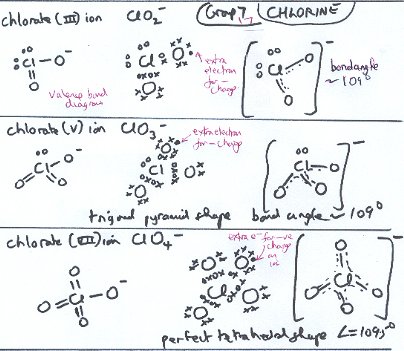 chlorate (III) ion ClO2⁻ Group 7 CHLORINE
valence bond diagram
extra electron for - charge
bond angle ~ 109°
chlorate (V) ion ClO3⁻
extra electron for - charge
trigonal pyramid shape bond angle ~ 109°
chlorate (VII) ion ClO4⁻
extra e⁻ for -ve charge on ion
perfect tetrahedral shape ∠=109.5°